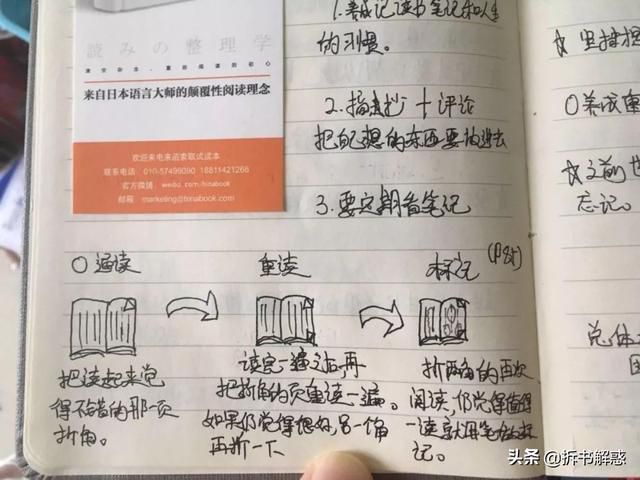 読みの整理学
来自日本语言大师的颠覆性阅读理念
欢迎来电来函索取试读本
联系电话: 010-57499090 18811421266
官方微博: weibo.com/hinabook
邮箱: marketing@hinabook.com
1.养成记读书笔记和人生
的习惯。
2.摘抄 + 评论
把自己想的东西要抽进去
3.要定期看笔记
☆ 坚持摘
○ 养成重
☆ 文前也
忘记。
总体
○ 通读
重读
标记 (P85)
把读起来觉
得不错的那一页
折角。
读完一遍之后,再
把折角的页重读一遍。
如果仍觉得想好,另一角
再折一下
折两角的再次
阅读,仍觉得值得
一读就用笔标
记。
头条 @拆书解惑